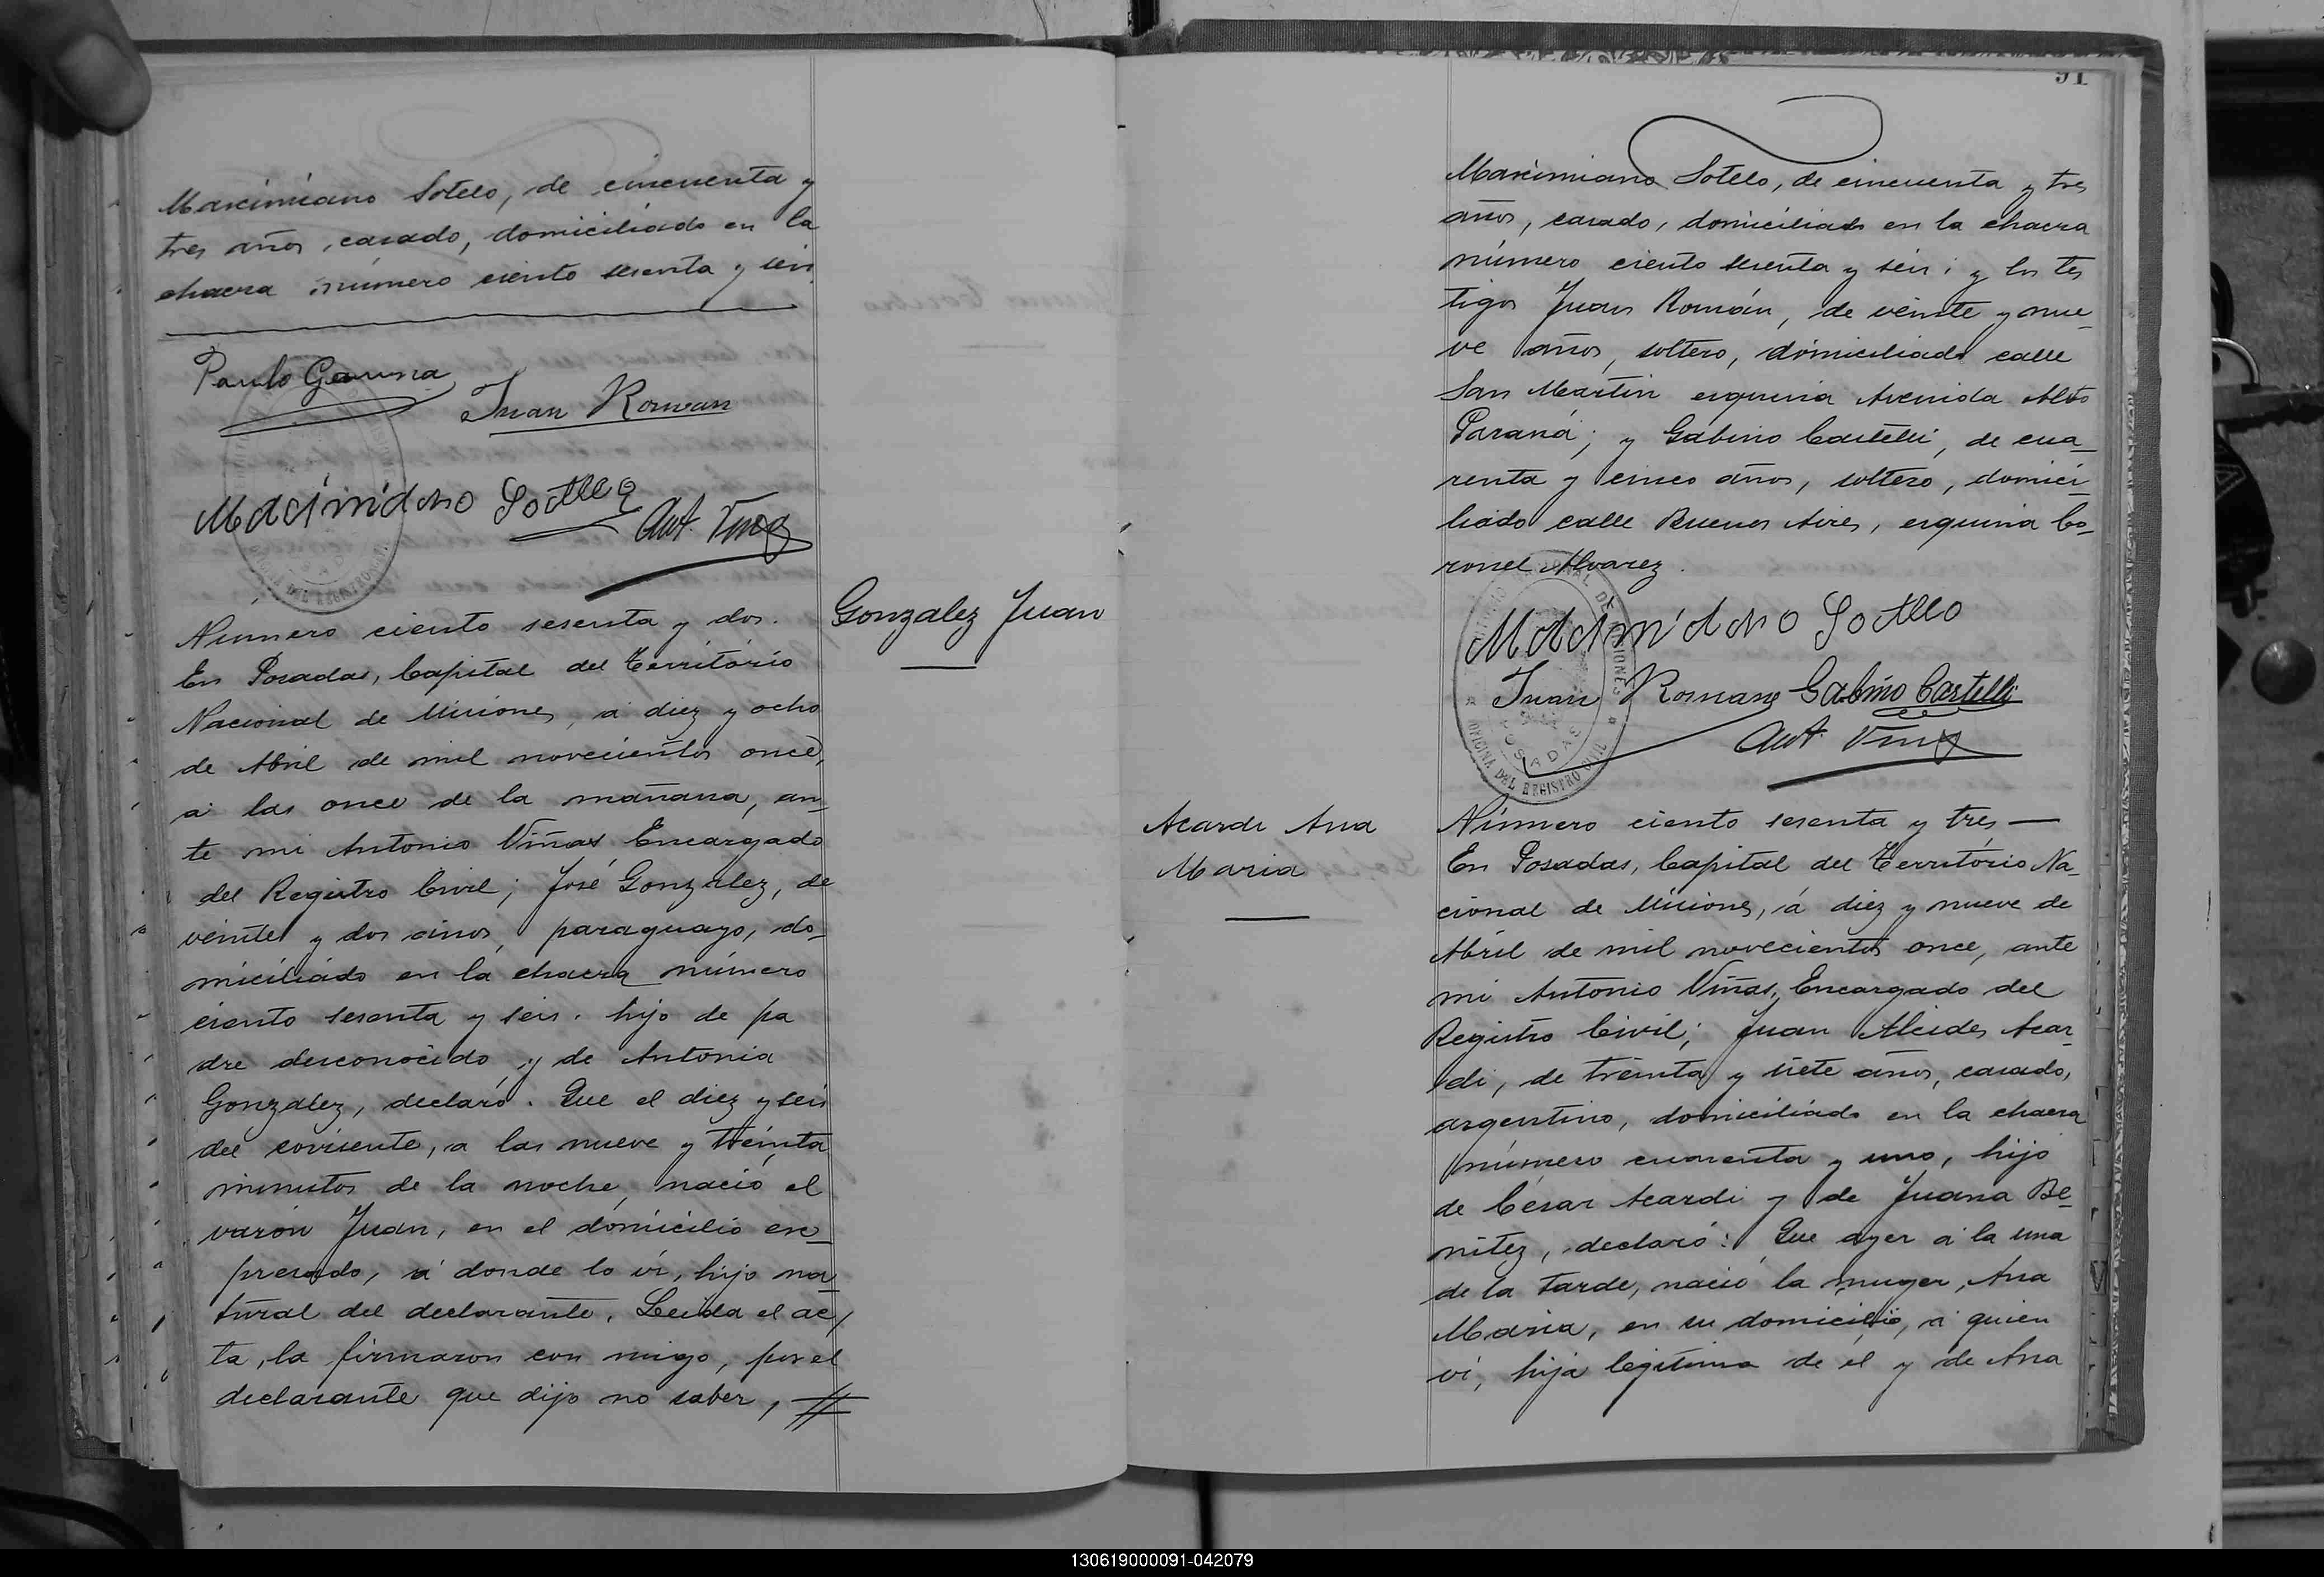 Maximiano Sotelo, de cincuenta y
tres años, casado, domiciliado en la
chacra número ciento sesenta y seis.
Juan Roman
Maximiano Sotelo
Ant. Viñas
Número ciento sesenta y dos.
En Posadas, Capital del Territorio
Nacional de Misiones, á diez y ocho
de Abril de mil novecientos once,
a las once de la mañana, an-
te mi Antonio Viñas Encargado
del Registro Civil; José Gonzalez, de
veinte y dos años, paraguayo, do-
miciliado en la chacra número
ciento sesenta y seis, hijo de pa
dre desconocido y de Antonia
Gonzalez, declaró: Que el diez y seis
del corriente, a las nueve y treinta
minutos de la noche, nació el
varón Juan, en el domicilio ex-
presado, á donde lo ví, hijo na-
tural del declarante. Leida el ac-
ta, la firmaron con migo, por el
declarante que dijo no saber, //
Gonzalez Juan
91
Maximiano Sotelo, de cincuenta y tres
años, casado, domiciliado en la chacra
número ciento sesenta y seis; y los tes
tigos Juan Román, de veinte y nue-
ve años, soltero, domiciliado calle
San Martin esquina Avenida Alto
Paraná; y Gabino Castelli, de cua-
renta y cinco años, soltero, domici-
liado calle Buenos Aires, esquina Co-
ronel Alvarez.
Maximiano Sotelo
Juan Roman Gabino Castelli
Ant. Viñas
OFICINA DEL REGISTRO CIVIL
POSADAS
Acardi Ana
Maria
Número ciento sesenta y tres —
En Posadas, Capital del Territorio Na-
cional de Misiones, á diez y nueve de
Abril de mil novecientos once, ante
mi Antonio Viñas, Encargado del
Registro Civil; Juan Alcides Acar-
di, de treinta y siete años, casado,
argentino, domiciliado en la chacra
número cuarenta y uno, hijo
de César Acardi y de Juana Be-
nitez, declaró: Que ayer a la una
de la tarde, nació la muger, Ana
Maria, en su domicilio, á quien
ví, hija legitima de él y de Ana
130619000091-042079